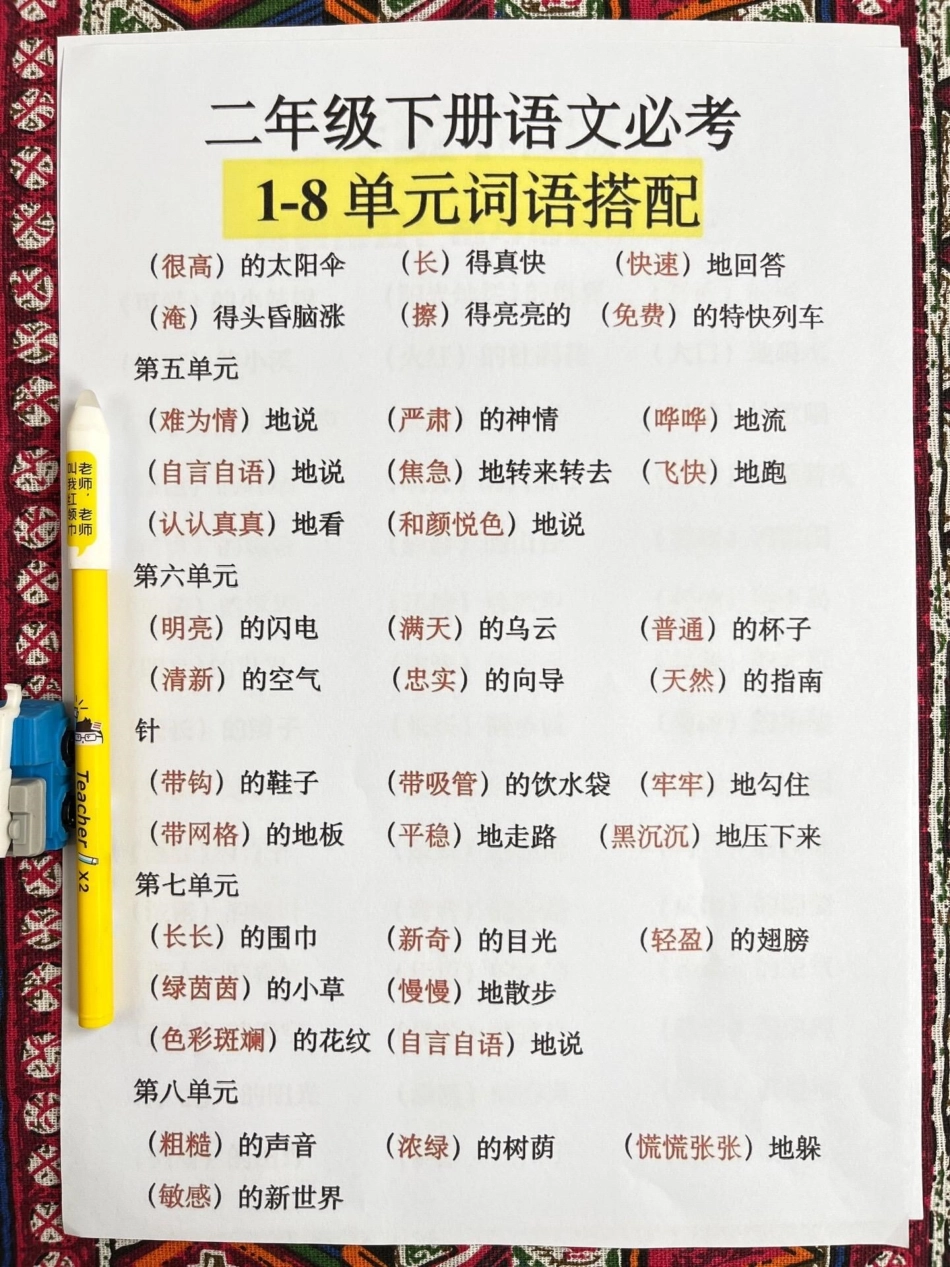 二年级下册语文必考
1-8 单元词语搭配
（很高）的太阳伞 （长）得真快 （快速）地回答
（淹）得头昏脑涨 （擦）得亮亮的 （免费）的特快列车
第五单元
（难为情）地说 （严肃）的神情 （哗哗）地流
（自言自语）地说 （焦急）地转来转去 （飞快）地跑
（认认真真）地看 （和颜悦色）地说
第六单元
（明亮）的闪电 （满天）的乌云 （普通）的杯子
（清新）的空气 （忠实）的向导 （天然）的指南
针
（带钩）的鞋子 （带吸管）的饮水袋 （牢牢）地勾住
（带网格）的地板 （平稳）地走路 （黑沉沉）地压下来
第七单元
（长长）的围巾 （新奇）的目光 （轻盈）的翅膀
（绿茵茵）的小草 （慢慢）地散步
（色彩斑斓）的花纹 （自言自语）地说
第八单元
（粗糙）的声音 （浓绿）的树荫 （慌慌张张）地躲
（敏感）的新世界
老师，老师
叫我红领巾
Teacher X2